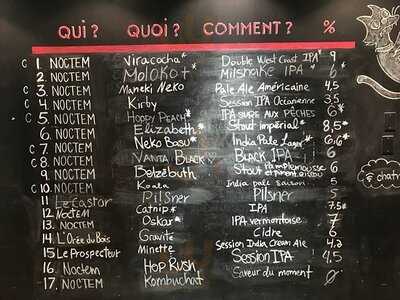 QUI ? QUOI ? COMMENT ? %
C 1. NOCTEM Viracocha* Double West Coast IPA* 9
2. NOCTEM MOLOKO+* Milkshake IPA* 6
C 3. NOCTEM Maneki Neko Pale Ale Américaine 4,5
C 4. NOCTEM Kirby Session IPA Océanienne 3,5
C 5. NOCTEM HOPPY PEACH* IPA SURE AUX PÊCHES 6
6. NOCTEM Elizabeth* Stout impérial* 8,5*
C 7. NOCTEM Neko Basu* India Pale Lager* 6,6*
C 8. NOCTEM VANTA BLACK BLACK IPA 6
9. NOCTEM Belzébuth Stout pamplemousse et piment 5
C 10. NOCTEM Koala India pale saison 5
11 Le Castor Pilsner Pilsner 5
12 NOCTEM Catnip* IPA 7.5*
13. NOCTEM Oskar* IPA vermontoise 7
14. L'Orée du Bois Gravité Cidre 6
15 Le Prospecteur Minette Session India Cream Ale 4.2
16. Noctem Hop Rush Session IPA 4,5
17. NOCTEM Kombuchat Saveur du moment 0
chat